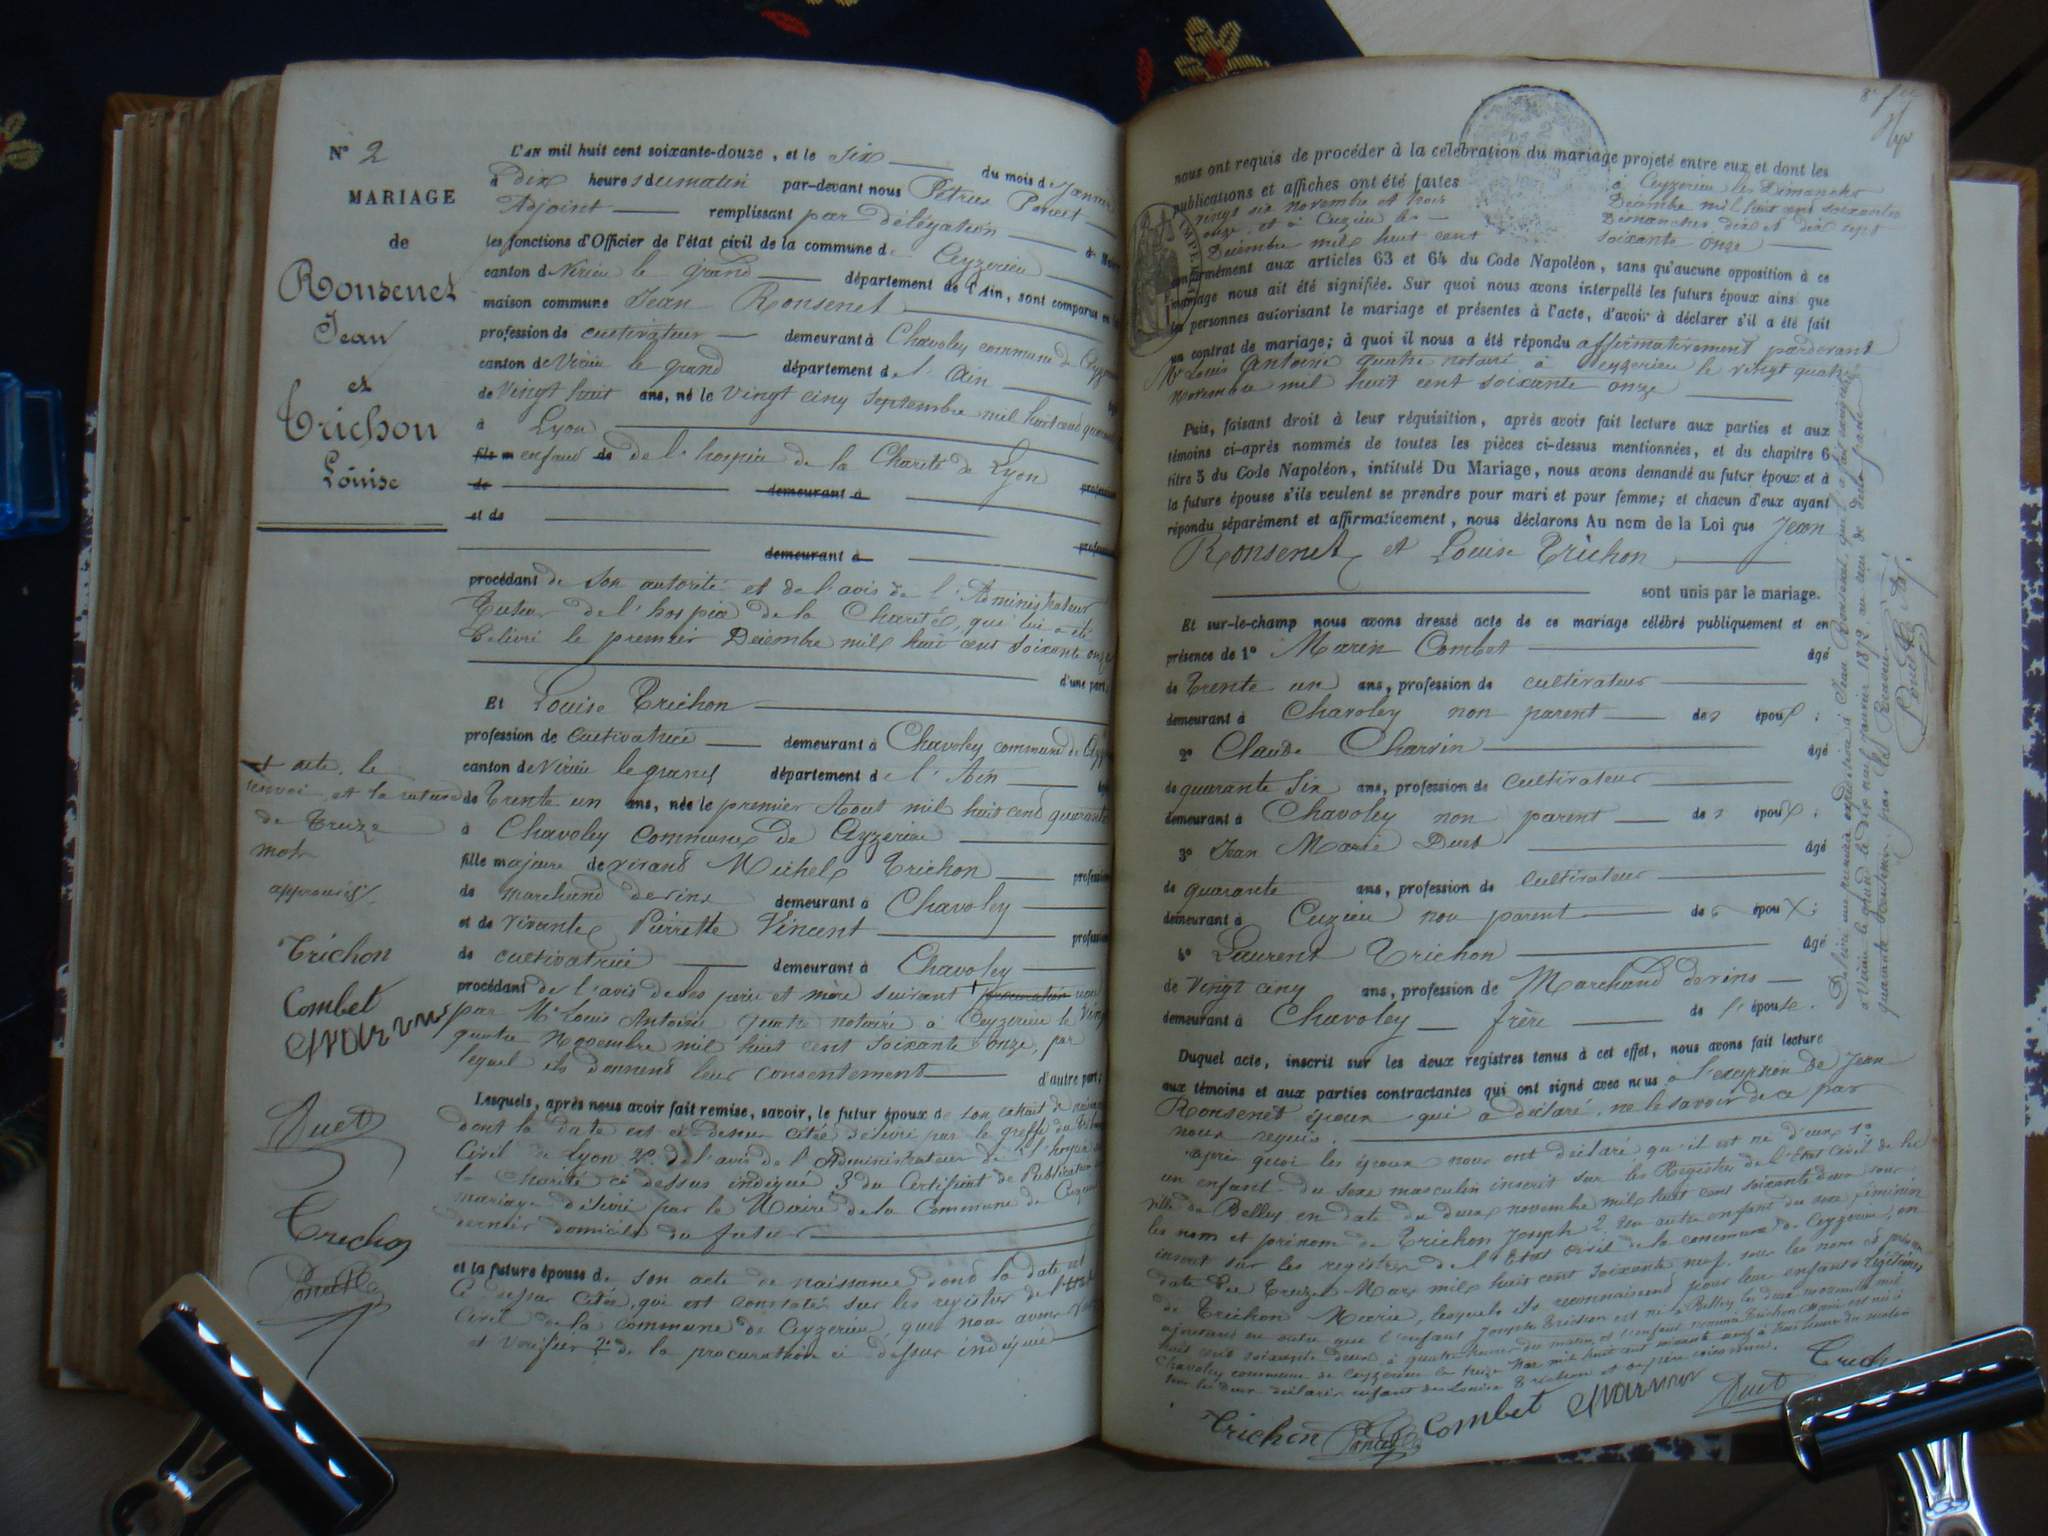 N° 2
MARIAGE
de
Ronsenet
Jean
et
Trichon
Louise
L'AN mil huit cent soixante-douze, et le six du mois de Janvier
à dix heures du matin par-devant nous Pétrus Poncet
Adjoint remplissant par délégation de Maire
les fonctions d'Officier de l'état civil de la commune de Ceyzerieu
canton de Virieu le grand département de l'Ain, sont comparus en la
maison commune Jean Ronsenet
profession de cultivateur demeurant à Chavoley commune de Ceyz
canton de Virieu le grand département de l'Ain
de vingt huit ans, né le vingt cinq Septembre mil huit cent quarante
à Lyon
fils enfant de de l'hospice de la Charité de Lyon
de demeurant à profession
et de
demeurant à profession
procédant de son autorité et de l'avis de l'Administrateur
Tuteur de l'hospice de la Charité, qui lui a été
délivré le premier Décembre mil huit cent soixante onze
d'une part,
Et Louise Trichon
profession de cultivatrice demeurant à Chavoley commune de Ceyz
canton de Virieu le grand département de l'Ain
de Trente un ans, née le premier Aout mil huit cent quarante
à Chavoley commune de Ceyzerieu
fille majeure de vivant Michel Trichon profession
de marchand de vins demeurant à Chavoley
et de vivante Pierrette Vincent profession
de cultivatrice demeurant à Chavoley
procédant de l'avis de ses père et mère suivant procuration
par Me Louis Antoine notaire à Ceyzerieu le vingt
quatre Novembre mil huit cent soixante onze, par
lequel ils donnent leur consentement d'autre part;
Lesquels, après nous avoir fait remise, savoir, le futur époux de son extrait de naissance
dont la date est ci dessus citée délivré par le greffe du Tribunal
Civil de Lyon 2° de l'avis de l'Administrateur de l'hospice de
la Charité ci dessus indiqué 3° du Certificat de Publication de
mariage délivré par le Maire de la Commune de Ceyzerieu
dernier domicile du futur
et la future épouse de son acte de naissance dont la date est
ci dessus citée, qui est constatée sur les registres de l'état
civil de la commune de Ceyzerieu, que nous avons
et vérifiés 2° de la procuration ci dessus indiquée
acte, le
renvoi et la rature
de Treize
mots
approuvés
Trichon
Combet
Charvin
Duet
Trichon
Poncet
nous ont requis de procéder à la célébration du mariage projeté entre eux et dont les
publications et affiches ont été faites à Ceyzerieu les Dimanches
vingt six novembre et trois Décembre mil huit cent soixante
onze et à Cuzieu les Dimanches dix et dix sept
Décembre mil huit cent soixante onze
conformément aux articles 63 et 64 du Code Napoléon, sans qu'aucune opposition à ce
mariage nous ait été signifiée. Sur quoi nous avons interpellé les futurs époux ainsi que
les personnes autorisant le mariage et présentes à l'acte, d'avoir à déclarer s'il a été fait
un contrat de mariage; à quoi il nous a été répondu affirmativement pardevant
Me Louis Antoine notaire à Ceyzerieu le vingt quatre
Novembre mil huit cent soixante onze
Puis, faisant droit à leur réquisition, après avoir fait lecture aux parties et aux
témoins ci-après nommés de toutes les pièces ci-dessus mentionnées, et du chapitre 6
titre 5 du Code Napoléon, intitulé Du Mariage, nous avons demandé au futur époux et à
la future épouse s'ils veulent se prendre pour mari et pour femme; et chacun d'eux ayant
répondu séparément et affirmativement, nous déclarons Au nom de la Loi que Jean
Ronsenet et Louise Trichon
sont unis par le mariage.
Et sur-le-champ nous avons dressé acte de ce mariage célébré publiquement et en
présence de 1° Marin Combet âgé
de Trente un ans, profession de cultivateur
demeurant à Chavoley non parent des époux;
2° Claude Charvin âgé
de quarante six ans, profession de cultivateur
demeurant à Chavoley non parent des époux;
3° Jean Marie Duet âgé
de quarante ans, profession de cultivateur
demeurant à Cuzieu non parent des époux;
4° Laurent Trichon âgé
de vingt cinq ans, profession de Marchand de vins
demeurant à Chavoley frère de l'épouse.
Duquel acte, inscrit sur les deux registres tenus à cet effet, nous avons fait lecture
aux témoins et aux parties contractantes qui ont signé avec nous à l'exception de Jean
Ronsenet époux qui a déclaré ne le savoir de ce par
nous requis.
Après quoi les époux nous ont déclaré qu'il est né d'eux 1°
un enfant du sexe masculin inscrit sur les Registres de l'Etat Civil de la
ville de Belley en date du deux novembre mil huit cent soixante deux sous
les nom et prénom de Trichon Joseph 2° un autre enfant du sexe féminin
inscrit sur les registres de l'Etat civil de la commune de Ceyzerieu, en
date du Treize Mars mil huit cent soixante neuf sous les nom et prénom
de Trichon Marie, lesquels ils reconnaissent pour leur enfants légitimes,
ajoutant en outre que l'enfant Joseph Trichon est né à Belley le deux novembre mil
huit cent soixante deux à quatre heures du matin et l'enfant nommé Trichon Marie est né à
Chavoley commune de Ceyzerieu le treize Mars mil huit cent soixante neuf à trois heures du matin
Trichon Poncet Combet Charvin Duet Trich
Délivré une première expédition à Jean Ronsenet
à Virieu le grand le dix neuf Janvier 1872
Poncet